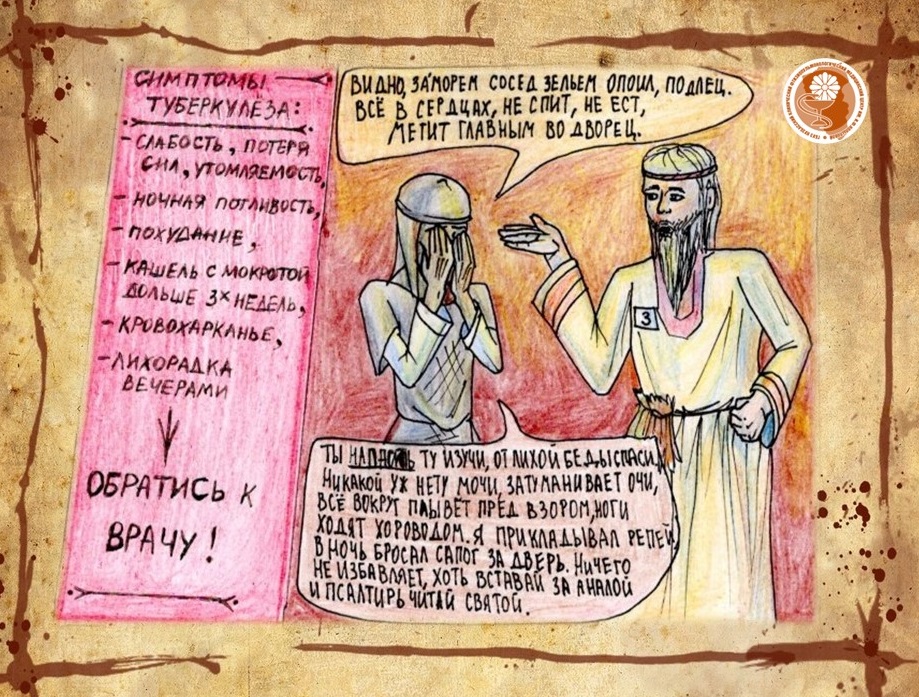 СИМПТОМЫ
ТУБЕРКУЛЕЗА:
- СЛАБОСТЬ, ПОТЕРЯ
СИЛ, УТОМЛЯЕМОСТЬ,
- НОЧНАЯ ПОТЛИВОСТЬ,
- ПОХУДАНИЕ,
- КАШЕЛЬ С МОКРОТОЙ
ДОЛЬШЕ 3Х НЕДЕЛЬ,
- КРОВОХАРКАНЬЕ,
- ЛИХОРАДКА
ВЕЧЕРАМИ
ОБРАТИСЬ К
ВРАЧУ!
ВИДНО, ЗА МОРЕМ СОСЕД ЗЕЛЬЕМ ОПОИЛ, ПОДЛЕЦ.
ВСЁ В СЕРДЦАХ, НЕ СПИТ, НЕ ЕСТ,
МЕТИТ ГЛАВНЫМ ВО ДВОРЕЦ.
3
ТЫ ТУ ИЗУЧИ, ОТ ЛИХОЙ БЕДЫ СПАСИ.
НИКАКОЙ УЖ НЕТУ МОЧИ, ЗАТУМАНИВАЕТ ОЧИ,
ВСЁ ВОКРУГ ПЛЫВЁТ ПРЕД ВЗОРОМ, НОГИ
ХОДЯТ ХОРОВОДОМ. Я ПРИКЛАДЫВАЛ РЕПЕЙ,
В НОЧЬ БРОСАЛ САПОГ ЗА ДВЕРЬ. НИЧЕГО
НЕ ИЗБАВЛЯЕТ, ХОТЬ ВСТАВАЙ ЗА АНАЛОЙ
И ПСАЛТИРЬ ЧИТАЙ СВЯТОЙ.